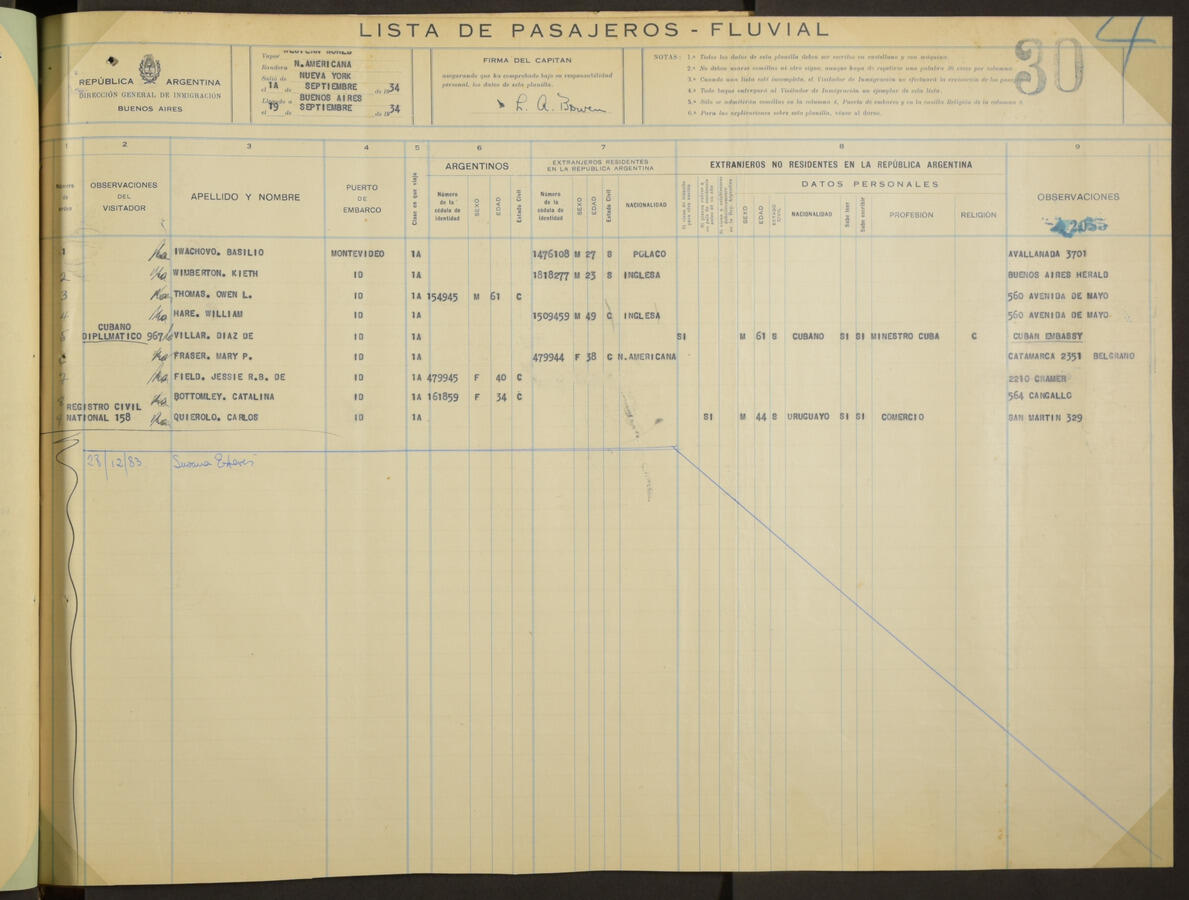 LISTA DE PASAJEROS - FLUVIAL
4
30
REPÚBLICA ARGENTINA
DIRECCIÓN GENERAL DE INMIGRACIÓN
BUENOS AIRES
Vapor
Bandera N. AMERICANA
Salió de NUEVA YORK
el 1A de SEPTIEMBRE de 1934
Llegado a BUENOS AIRES
el 19 de SEPTIEMBRE de 1934
FIRMA DEL CAPITAN
asegurando que ha comprobado bajo su responsabilidad
personal, los datos de esta planilla.
L. A. Bowen
NOTAS: 1.ª Todos los datos de esta planilla deben ser escritos en castellano y con máquina.
2.ª No deben usarse comillas ni otro signo, aunque haya de repetirse una palabra 30 veces por columna.
3.ª Cuando una lista esté incompleta, el Visitador de Inmigración no efectuará la revisación de los
4.ª Todo buque entregará al Visitador de Inmigración un ejemplar de esta lista.
5.ª Sólo se admitirán comillas en la columna 4, Puerto de embarco y en la casilla Religión de la columna 8.
6.ª Para las explicaciones sobre esta planilla, véase al dorso.
1 2 3 4 5 6 7 8 9
Número de orden
OBSERVACIONES DEL VISITADOR
APELLIDO Y NOMBRE
PUERTO DE EMBARCO
Clase en que viaja
ARGENTINOS
Número de la cédula de identidad
SEXO
EDAD
Estado Civil
EXTRANJEROS RESIDENTES EN LA REPÚBLICA ARGENTINA
Número de la cédula de identidad
SEXO
EDAD
Estado Civil
NACIONALIDAD
EXTRANJEROS NO RESIDENTES EN LA REPÚBLICA ARGENTINA
DATOS PERSONALES
SEXO
EDAD
ESTADO CIVIL
NACIONALIDAD
Sabe leer
Sabe escribir
PROFESIÓN
RELIGIÓN
OBSERVACIONES
2055
1 IWACHOVO. BASILIO MONTEVIDEO 1A 1476108 M 27 S POLACO AVALLANADA 3701
2 WIMBERTON. KIETH ID 1A 1818277 M 23 S INGLESA BUENOS AIRES HERALD
3 THOMAS. OWEN L. ID 1A 154945 M 61 C 560 AVENIDA DE MAYO
4 HARE. WILLIAM ID 1A 1509459 M 49 C INGLESA 560 AVENIDA DE MAYO
CUBANO
5 DIPLLMATICO 967 VILLAR. DIAZ DE ID 1A SI M 61 S CUBANO SI SI MINESTRO CUBA C CUBAN EMBASSY
FRASER. MARY P. ID 1A 479944 F 38 C N.AMERICANA CATAMARCA 2351 BELGRANO
7 FIELD. JESSIE R.B. DE ID 1A 479945 F 40 C 2210 CRAMER
8 BOTTOMLEY. CATALINA ID 1A 161859 F 34 C 564 CANGALLO
REGISTRO CIVIL
9 NATIONAL 158 QUIEROLO. CARLOS ID 1A SI M 44 S URUGUAYO SI SI COMERCIO SAN MARTIN 329
23/12/83 Susana Esteves